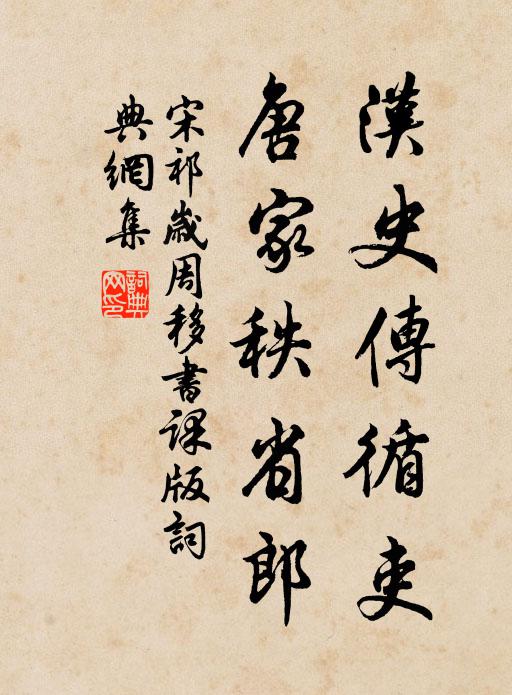 漢史傳循吏
唐家秩省郎
宋祁歲周移書課版詞
典網集
詞典
网印